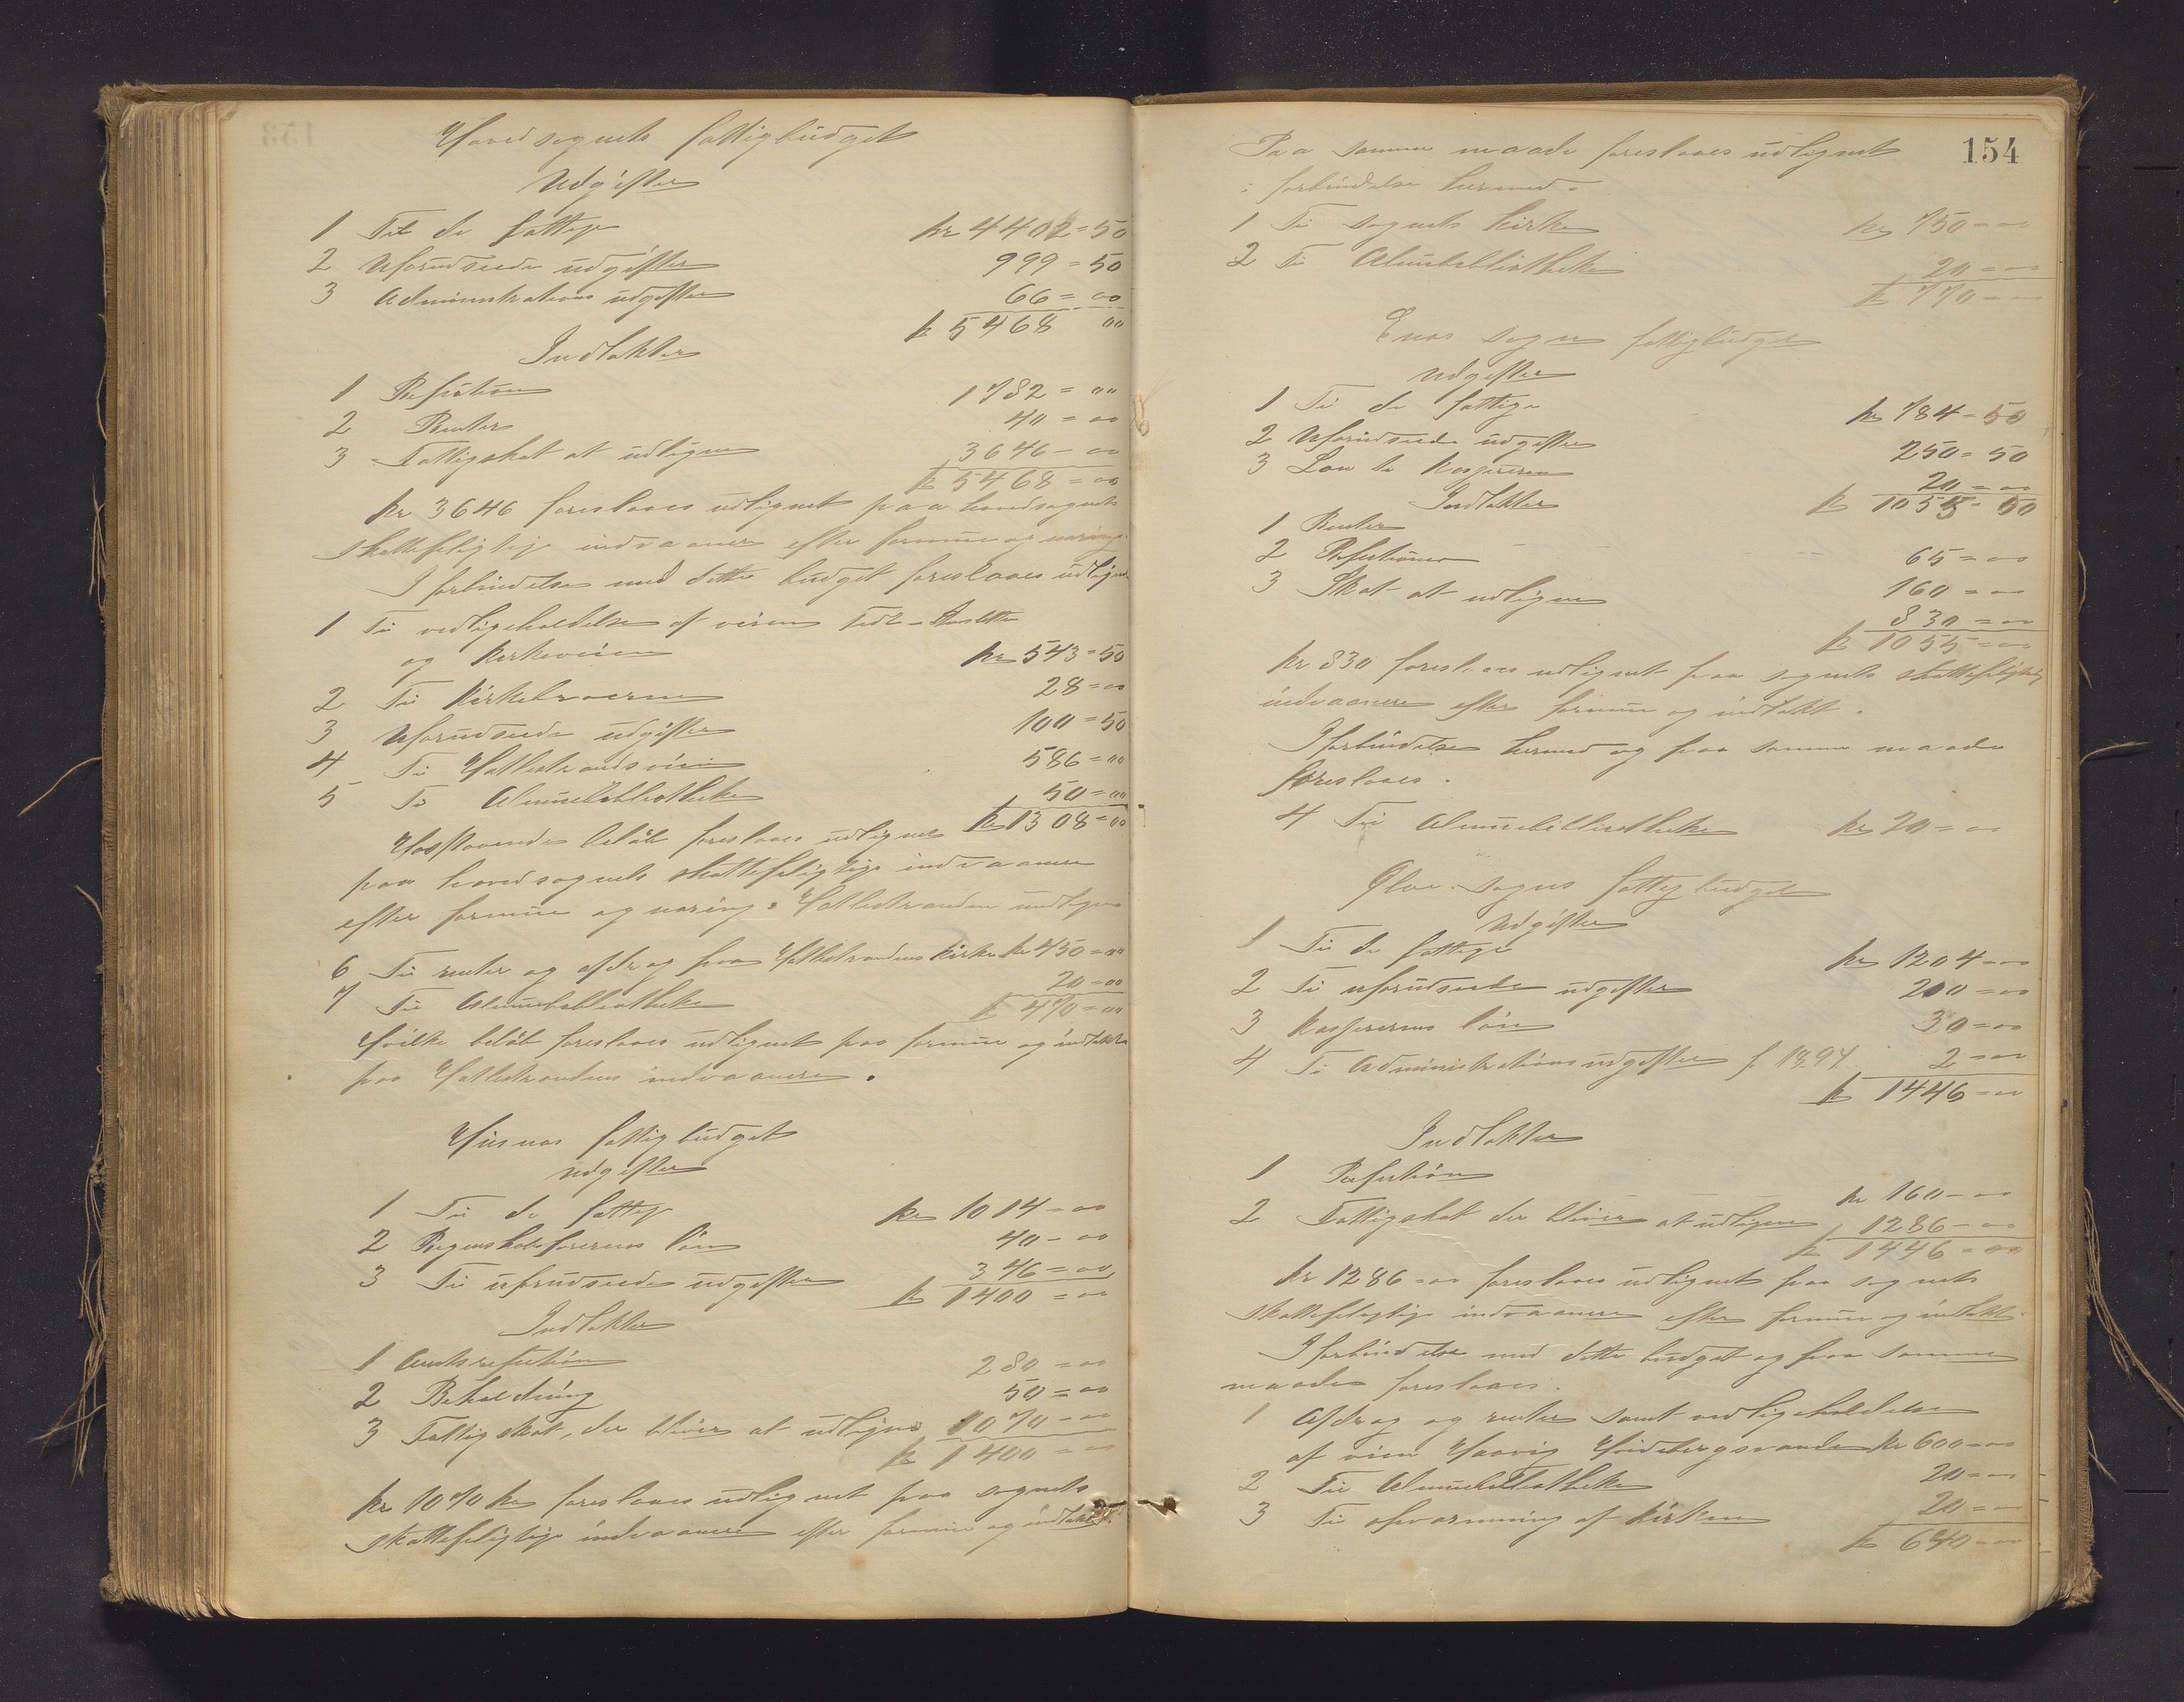 Hovedsognets fattigbudget
Udgifter
1 Til de fattige kr 4402=50
2 Uforudseede udgifter 999=50
3 Administrations udgifter 66=00
kr 5468 00
Indtækter
1 Refusion 1782=00
2 Renter 40=00
3 Fattigskat at udligne 3646-00
kr 5468=00
kr 3646 foreslaaes udlignet paa hovedsognets
skattepligtige indvaanere efter formue og næring.
I forbindelse med dette budget foreslaaes udlignet
1 Til vedligeholdelse af veien
og Kirkeveien kr 543=50
2 Til Kirkebroerne 28=00
3 Uforudseede udgifter 100=50
4 Til Hatlestrandsveien 586=00
5 Til Almuebibliotheket 50=00
kr 1308=00
Hosstaaende beløb foreslaaes udlignet
paa hovedsognets skattepligtige indvaanere
efter formue og næring. Hatlestranden undtagen
6 Til renter og afdrag paa Hatlestrandens Kirke kr 450=00
7 Til Almuebibliotheket 20=00
kr 470=00
Hvilke beløb foreslaaes udlignet paa formue og indtækt
paa Hatlestrandens indvaanere.
Husnæs fattigbudget
Udgifter
1 Til de fattige kr 1014-00
2 Regnskabsførerens løn 40-00
3 Til uforudseede udgifter 346=00
kr 1400=00
Indtækter
1 Amtsrefusion 280=00
2 Beholdning 50=00
3 Fattigskat, der bliver at udligne 1070-00
kr 1400=00
kr 1070 kr foreslaaes udlignet paa sognets
skattepligtige indvaanere efter formue og indtækt.
154
Paa samme maade foreslaaes udlignet
i forbindelse hermed.
1 Til sognets Kirke kr 750-00
2 Til Almuebibliotheket 20=00
kr 770-00
Enæs sogns fattigbudget
Udgifter
1 Til de fattige kr 784-50
2 Uforudseede udgifter 250=50
3 Løn til Kassereren 20=00
kr 1055-50
Indtækter
1 Renter
2 Refusioner 65=00
3 Skat at udligne 160=00
830=00
kr 1055=00
kr 830 foreslaaes udlignet paa sognets skattepligtige
indvaanere efter formue og indtækt.
I forbindelse hermed og paa samme maade
foreslaaes.
4 Til Almuebibliotheket kr 20=00
Ølve sogns fattigbudget
Udgifter
1 Til de fattige kr 1204-00
2 Til uforudseede udgifter 200=00
3 Kassererens løn 30=00
4 Til Administrationsudgifter f 1894. 2=00
kr 1446=00
Indtækter
1 Refusion kr 160-00
2 Fattigskat der bliver at udligne 1286-00
kr 1446=00
kr 1286-00 foreslaaes udlignet paa sognets
skattepligtige indvaanere efter formue og indtækt.
I forbindelse med dette budget og paa samme
maade foreslaaes.
1 Afdrag og renter samt vedligeholdelse
af veien Haavig Hvidebergsvandet kr 600-00
2 Til Almuebibliotheket 20=00
3 Til opvarmning af Kirken 20=00
kr 640-00